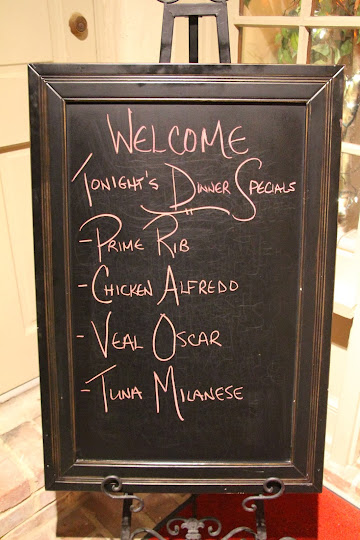 WELCOME
TONIGHT'S DINNER SPECIALS
- PRIME RIB
- CHICKEN ALFREDO
- VEAL OSCAR
- TUNA MILANESE